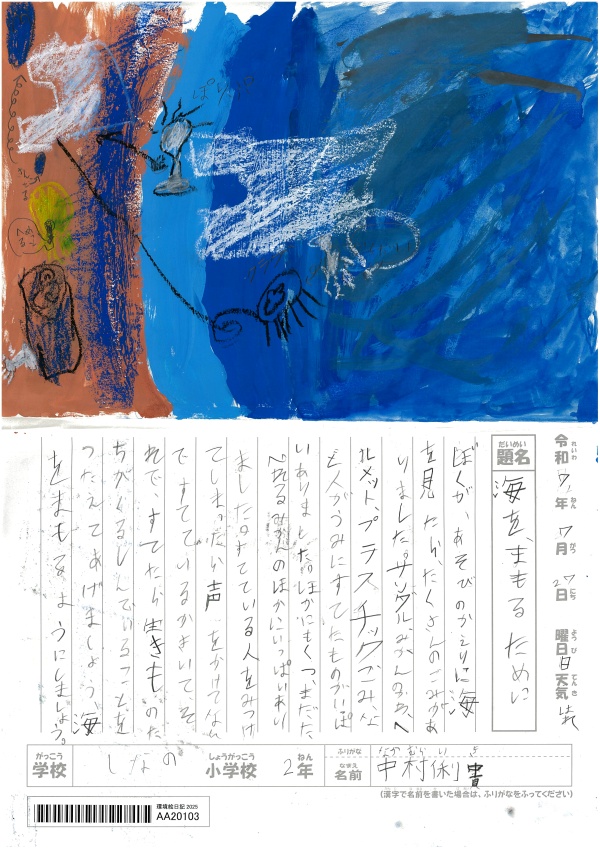 令和7年7月27日 曜日 日 天気
れいわ ねん がつ にち ようび てんき
だいめい
題名 海を、まもるために
ぼくが、あそびのかえりに海
を見たら、たくさんのごみがあ
りました。サンダルみかん へ
ルメット、プラスチックごみ、な
ど人がうみにすてたものが
いありました。ほかにもくつ、まだ、た
べれるみかんのほかにいっぱいあり
ました。すてている人をみつけ
てしまったら声をかけて
ですてているか いてそ
れですてたら生きものた
ちがくるしんでいることを
つたえてあげましょう海
をまもるようにしましょう。
がっこう しょうがっこう ねん ふりがな なかむらいき
学校 しなの 小学校 2年 なまえ 名前 中村
(漢字で名前を書いた場合は、ふりがなをふってください)
環境絵日記 2025
AA20103